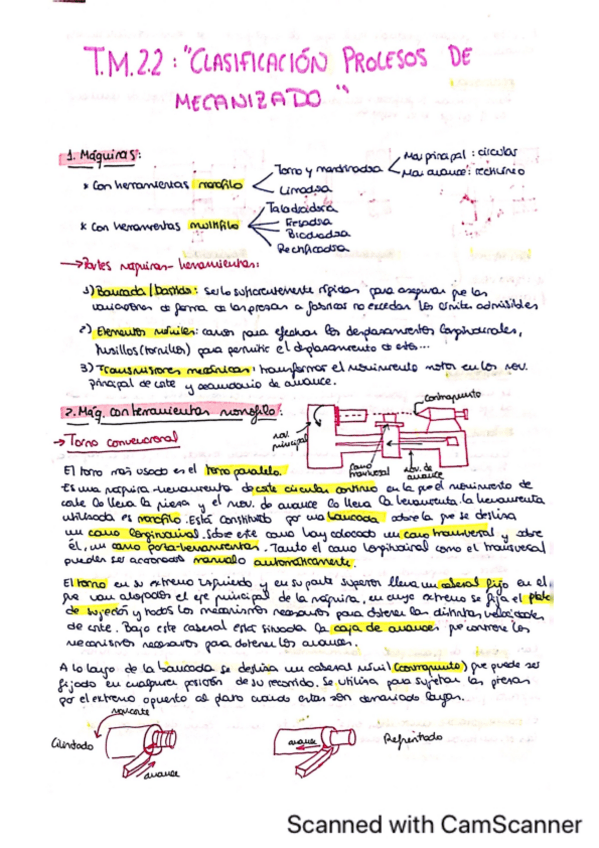 T.M.2.2: "CLASIFICACIÓN PROCESOS DE
MECANIZADO"
1. Máquinas:
* Con herramientas monofilo
Torno y mandrinadora
Limadora
Mov principal: circular
Mov avance: rectilíneo
* Con herramientas multifilo
Taladradora
Fresadora
Brochadora
Rectificadora
→ Partes máquinas-herramientas:
1) Bancada/bastidor: ser lo suficientemente rígidas para asegurar que las
variaciones de forma de las piezas a fabricar no excedan los límites admisibles
2) Elementos móviles: carros para efectuar los desplazamientos longitudinales,
husillos (tornillos) para permitir el desplazamiento de estos...
3) Transmisiones mecánicas: transforman el movimiento motor en los mov.
principal de corte y secundario de avance.
2. Máq. con herramientas monofilo:
→ Torno convencional
mov. principal
contrapunto
carro transversal
mov. de avance
El torno más usado es el torno paralelo.
Es una máquina-herramienta de corte circular continuo en la que el movimiento de
corte lo lleva la pieza y el mov. de avance lo lleva la herramienta. La herramienta
utilizada es monofilo. Está constituido por una bancada sobre la que se desliza
un carro longitudinal. Sobre este carro hay colocado un carro transversal y sobre
él, un carro porta-herramientas. Tanto el carro longitudinal como el transversal
pueden ser accionados manual o automáticamente.
El torno en su extremo izquierdo y en su parte superior lleva un cabezal fijo en el
que van alojados el eje principal de la máquina, en cuyo extremo se fija el plato
de sujeción y todos los mecanismos necesarios para obtener las distintas velocidades
de corte. Bajo este cabezal está situada la caja de avances que contiene los
mecanismos necesarios para obtener los avances.
A lo largo de la bancada se desliza un cabezal móvil (contrapunto) que puede ser
fijado en cualquier posición de su recorrido. Se utiliza para sujetar las piezas
por el extremo opuesto al plato cuando estas son demasiado largas.
mov. corte
Cilindrado
avance
avance
Refrentado
Scanned with CamScanner